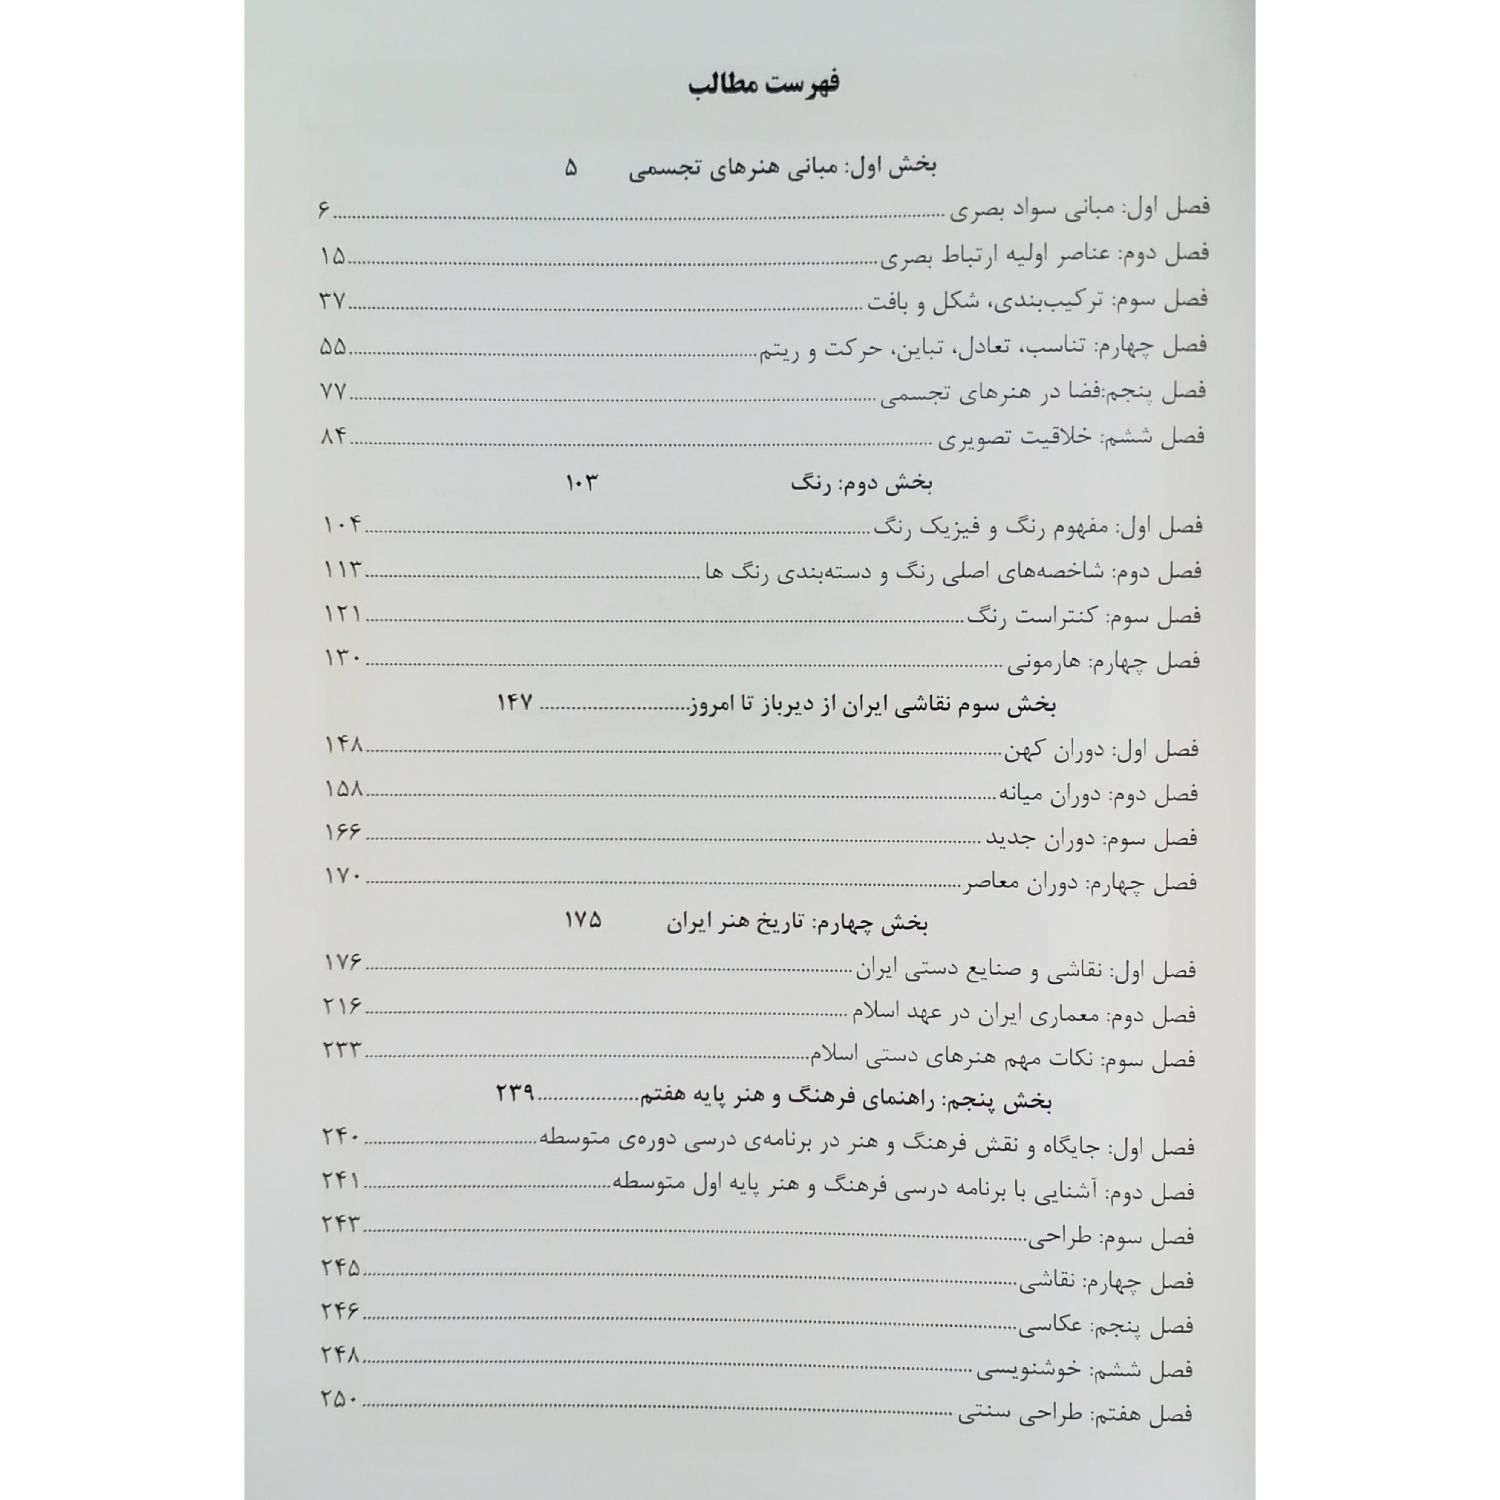 فهرست مطالب
بخش اول: مبانی هنرهای تجسمی ۵
فصل اول: مبانی سواد بصری ۶
فصل دوم: عناصر اولیه ارتباط بصری ۱۵
فصل سوم: ترکیب‌بندی، شکل و بافت ۳۷
فصل چهارم: تناسب، تعادل، تباین، حرکت و ریتم ۵۵
فصل پنجم:فضا در هنرهای تجسمی ۷۷
فصل ششم: خلاقیت تصویری ۸۴
بخش دوم: رنگ ۱۰۳
فصل اول: مفهوم رنگ و فیزیک رنگ ۱۰۴
فصل دوم: شاخصه‌های اصلی رنگ و دسته‌بندی رنگ ها ۱۱۳
فصل سوم: کنتراست رنگ ۱۲۱
فصل چهارم: هارمونی ۱۳۰
بخش سوم نقاشی ایران از دیرباز تا امروز ۱۴۷
فصل اول: دوران کهن ۱۴۸
فصل دوم: دوران میانه ۱۵۸
فصل سوم: دوران جدید ۱۶۶
فصل چهارم: دوران معاصر ۱۷۰
بخش چهارم: تاریخ هنر ایران ۱۷۵
فصل اول: نقاشی و صنایع دستی ایران ۱۷۶
فصل دوم: معماری ایران در عهد اسلام ۲۱۶
فصل سوم: نکات مهم هنرهای دستی اسلام ۲۳۳
بخش پنجم: راهنمای فرهنگ و هنر پایه هفتم ۲۳۹
فصل اول: جایگاه و نقش فرهنگ و هنر در برنامه‌ی درسی دوره‌ی متوسطه ۲۴۰
فصل دوم: آشنایی با برنامه درسی فرهنگ و هنر پایه اول متوسطه ۲۴۱
فصل سوم: طراحی ۲۴۳
فصل چهارم: نقاشی ۲۴۵
فصل پنجم: عکاسی ۲۴۶
فصل ششم: خوشنویسی ۲۴۸
فصل هفتم: طراحی سنتی ۲۵۰